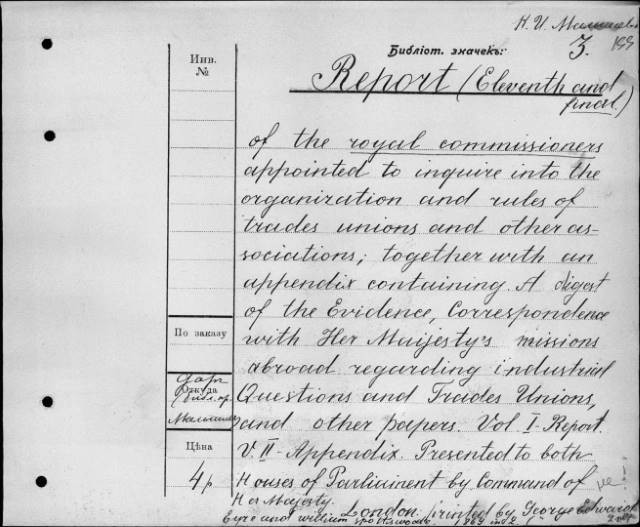 Н. И.
3.
Библіот. значекъ:
Инв.
№
Report (Eleventh and
final)
of the royal commissioners
appointed to inquire into the
organization and rules of
trades unions and other as-
sociations; together with an
appendix containing. A digest
of the Evidence, Correspondence
with Her Maijesty's missions
abroad regarding industrial
Questions and Trades Unions,
and other papers. Vol I-Report.
V. II-Appendix. Presented to both
Houses of Parliament by Command of
Her Majesty. London. printed by George Edward
Eyre and William Spottiswoode.
По заказу
Откуда
Цѣна
4р